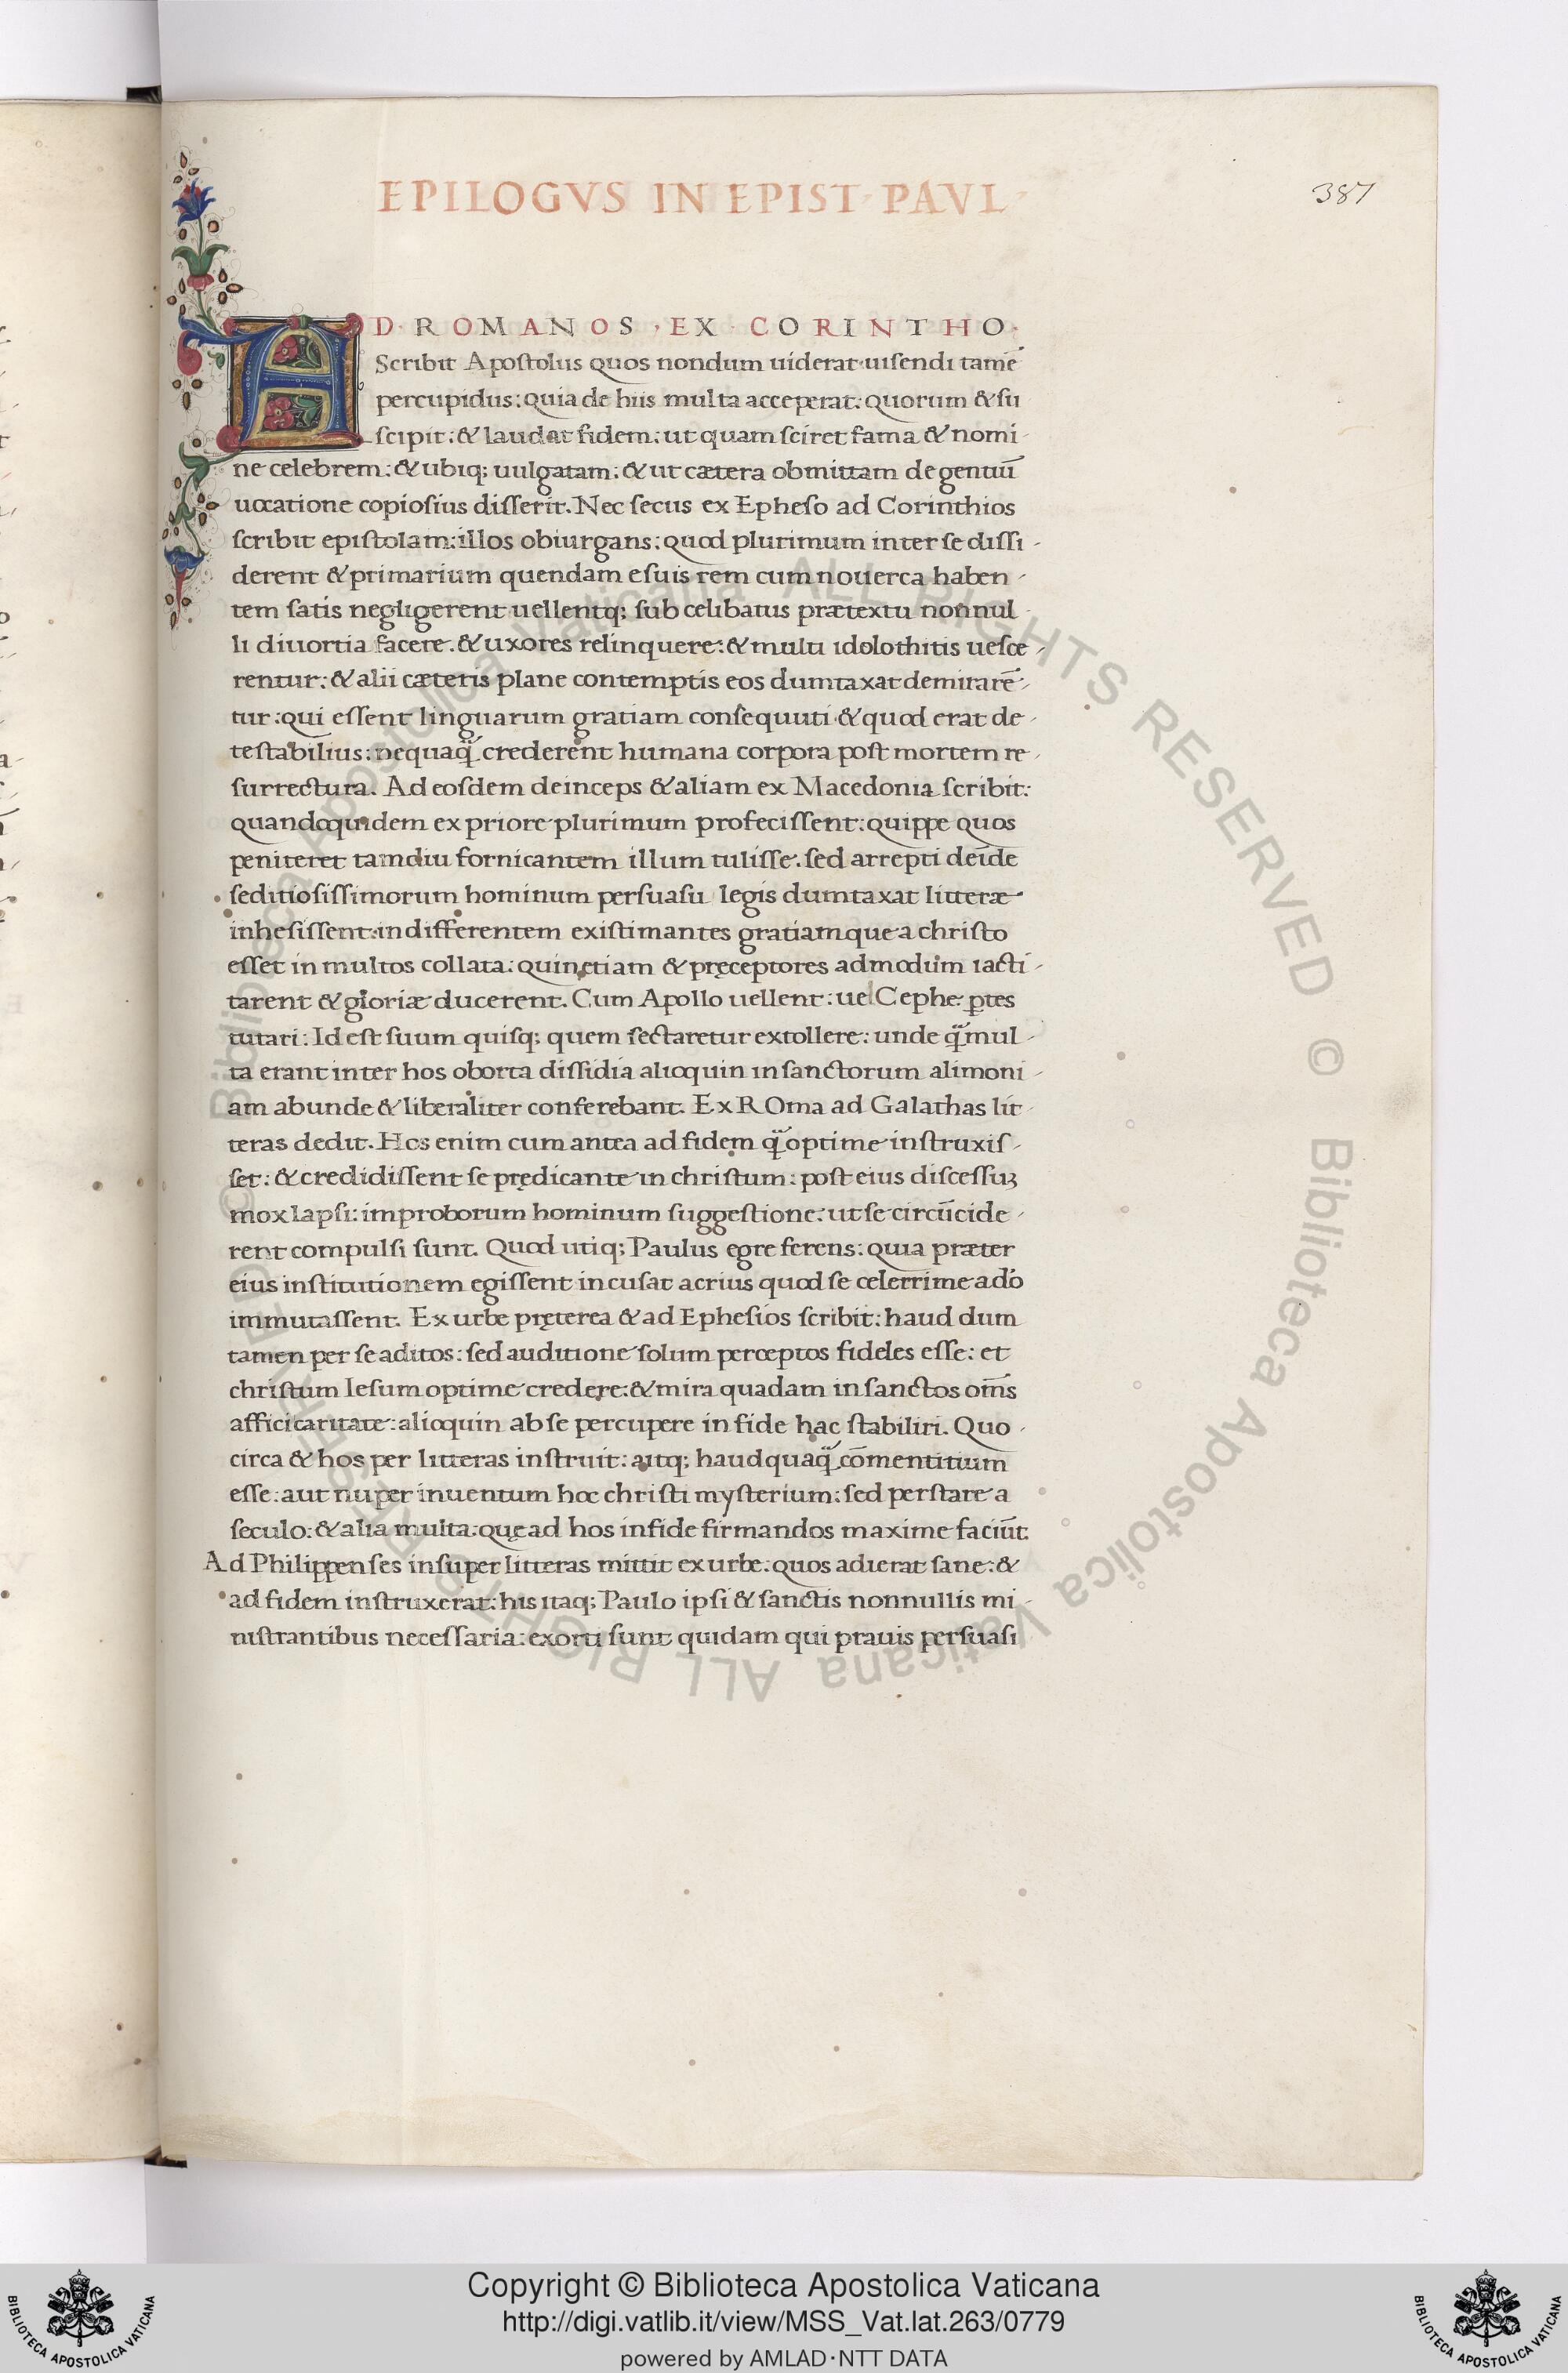 EPILOGVS IN EPIST · PAVL ·
387
AD · ROMANOS · EX · CORINTHO ·
Scribit Apostolus quos nondum uiderat uisendi tamē
percupidus: quia de hiis multa acceperat: quorum & su
scipit: & laudat fidem: ut quam sciret fama & nomi-
ne celebrem: & ubiq; uulgatam: & ut cætera obmittam de gentiū
uocatione copiosius disserit. Nec secus ex Epheso ad Corinthios
scribit epistolam: illos obiurgans: quod plurimum inter se dissi-
derent & primarium quendam e suis rem cum nouerca haben-
tem satis negligerent uellentq; sub celibatus prætextu nonnul-
li diuortia facere. & uxores relinquere: & multi idolothitis uesce-
rentur: & alii cæteris plane contemptis eos dumtaxat demirarē-
tur: qui essent linguarum gratiam consequuti & quod erat de-
testabilius: nequaq̃ crederent humana corpora post mortem re-
surrectura. Ad eosdem deinceps & aliam ex Macedonia scribit:
quandoquidem ex priore plurimum profecissent: quippe quos
peniteret tamdiu fornicantem illum tulisse. sed arrepti deīde
seditiosissimorum hominum persuasu legis dumtaxat litteræ
inhesissent: indifferentem existimantes gratiam que a christo
esset in multos collata: quinetiam & pręceptores admodum iacti-
tarent & gloriæ ducerent. Cum Apollo uellent: uel Cephe ꝑtes
tutari: Id est suum quisq; quem sectaretur extollere: unde q̃ mul-
ta erant inter hos oborta dissidia alioquin in sanctorum alimoni-
am abunde & liberaliter conferebant. Ex ROma ad Galathas lit-
teras dedit. Hos enim cum antea ad fidem q̃ optime instruxis-
set: & credidissent se prędicante in christum: post eius discessuꝫ
mox lapsi: improborum hominum suggestione: ut se circūcide-
rent compulsi sunt. Quod utiq; Paulus egre ferens: quia præter
eius institutionem egissent incusat acrius quod se celerrime adó
immutassent. Ex urbe pręterea & ad Ephesios scribit: haud dum
tamen per se aditos: sed auditione solum perceptos fideles esse: et
christum Iesum optime credere: & mira quadam in sanctos om̄s
affici caritate: alioquin ab se percupere in fide hac stabiliri. Quo-
circa & hos per litteras instruit: aitq; haudquaq̃ cōmentitium
esse: aut nuper inuentum hoc christi mysterium: sed perstare a
seculo: & alia multa: quę ad hos in fide firmandos maxime faciūt.
Ad Philippenses insuper litteras mittit ex urbe. quos adierat sane: &
ad fidem instruxerat: his itaq; Paulo ipsi & sanctis nonnullis mi-
nistrantibus necessaria: exorti sunt quidam qui prauis persuasi
© Biblioteca Apostolica Vaticana ALL RIGHTS RESERVED © Biblioteca Apostolica Vaticana ALL RIGHTS RESERVED
Copyright © Biblioteca Apostolica Vaticana
http://digi.vatlib.it/view/MSS_Vat.lat.263/0779
powered by AMLAD·NTT DATA
BIBLIOTECA APOSTOLICA VATICANA
BIBLIOTECA APOSTOLICA VATICANA